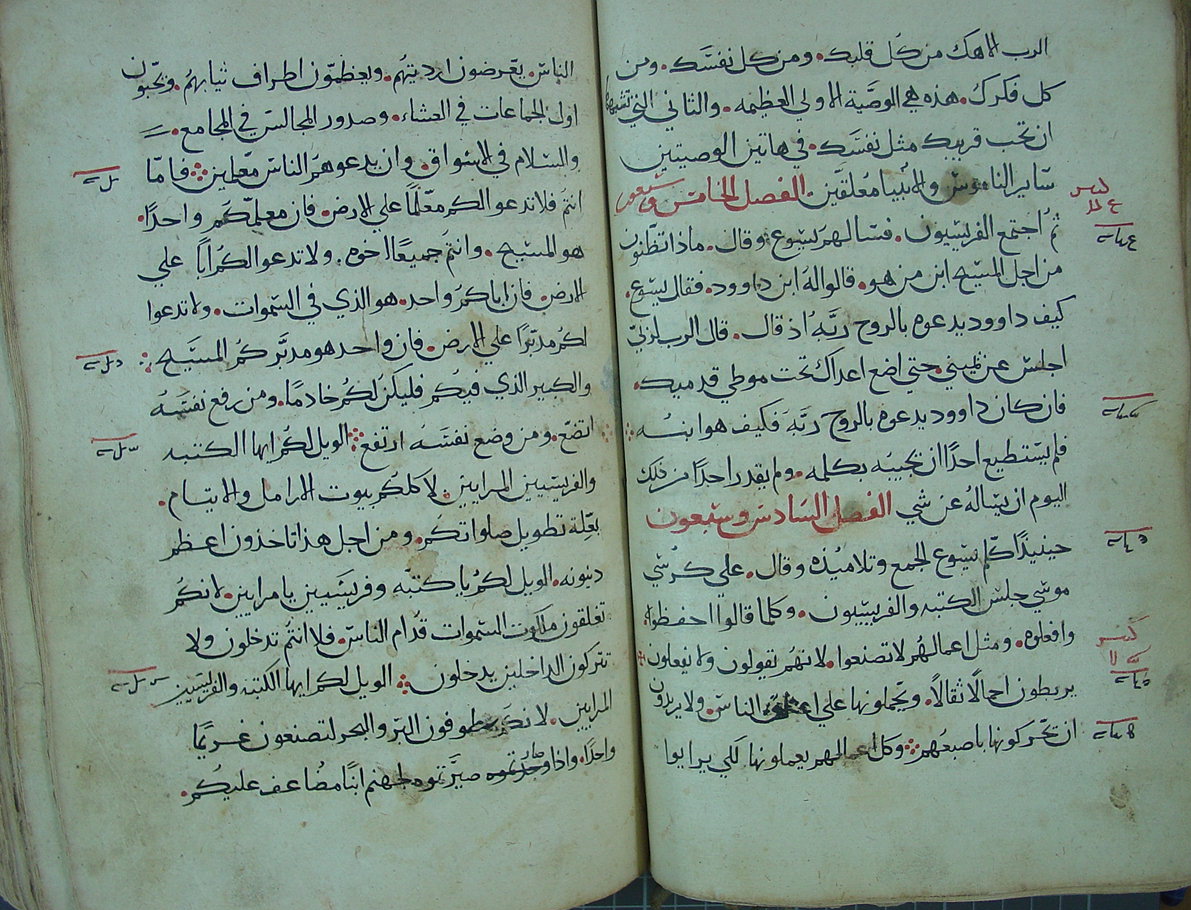 الرب الاهك من كل قلبك. ومن كل نفسك. ومن
كل فكرك. هذه هي الوصية الاولي العظيمه. والثاني التي تشبهها
ان تحب قريبك مثل نفسك. في هاتين الوصيتين
ساير الناموس والانبيا معلقين: الفصل الخامس وسبعون
ثم اجتمع الفريسيون. فسالهم يسوع وقال. ماذا تظنون
من اجل المسيح ابن من هو. قالوا له ابن داوود. فقال يسوع.
كيف داوود يدعوه بالروح ربه اذ قال. قال الرب لربي
اجلس عن يميني. حتي اضع اعداك تحت موطي قدميك.
فان كان داوود يدعوه بالروح ربه فكيف هو ابنه
فلم يستطيع احدا ان يجيبه بكلمه. ولم يقدر احدا من ذلك
اليوم ان يساله عن شي الفصل السادس وسبعون
حينيذ كلم يسوع الجمع وتلاميذه وقال. علي كرسي
موسي جلس الكتبه والفريسيون. وكلما قالوا احفظوا
وافعلوه. ومثل اعمالهم لا تصنعوا. لانهم يقولون ولا يفعلون
يربطون احمالا ثقالا. ويحملونها علي اعناق الناس. ولا يريدون
ان تحركونها باصبعهم. وكل اعمالهم يعملونها لكي يرايوا
الناس. يعرضون ارديتهم. ويعظمون اطراف ثيابهم. ويحبون
اول الجماعات في العشاء. وصدور المجالس في المجامع.
والسلام في الاسواق. وان يدعوهم الناس معلمين فاما
انتم فلا تدعوا لكم معلما علي الارض. فان معلمكم واحدا.
هو المسيح. وانتم جميعا اخوه. ولا تدعوا لكم ابا علي
الارض. فان اباكم واحد. هو الذي في السموات. ولا تدعوا
لكم مدبرا علي الارض. فان واحد هو مدبركم المسيح
والكبير الذي فيكم فليكن لكم خادما. ومن رفع نفسه
اتضع. ومن وضع نفسه ارتفع الويل لكم ايها الكتبه
والفريسيين المرايين. لاكلكم بيوت الارامل والايتام.
بعلة تطويل صلواتكم. ومن اجل هذا تاخذون اعظم
دينونه. الويل لكم يا كتبه وفريسيين يا مرايين. لانكم
تغلقون ملكوت السموات قدام الناس. فلا انتم تدخلون ولا
تتركون الداخلين يدخلون الويل لكم ايها الكتبه والفريسيين
المرايين. لانكم تطوفون البر والبحر لتصنعون غريبا
واحدا. واذا وجدتموه صيرتموه لجهنم ابنا مضاعف عليكم.